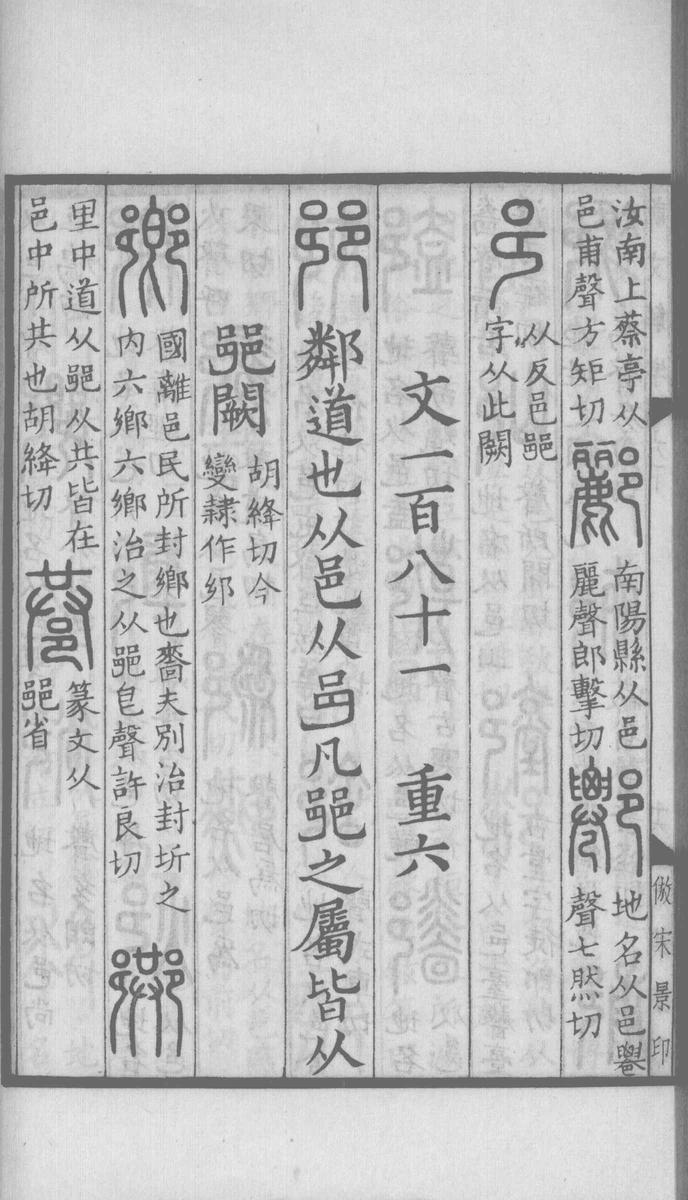 汝南上蔡亭从
邑甫聲方矩切
酈
南陽縣从邑
麗聲郎擊切
地名从邑
聲七然切
从反邑𨛜
字从此闕
文一百八十一　重六
𨛜
鄰道也从邑从𠨍凡𨛜之屬皆从
𨛜闕
胡絳切今
變隸作𨙨
鄉
國離邑民所封鄉也嗇夫別治封圻之
內六鄉六鄉治之从𨛜皀聲許良切
里中道从𨛜从共皆在
邑中所共也胡絳切
巷
篆文从
𨛜省
倣宋景印